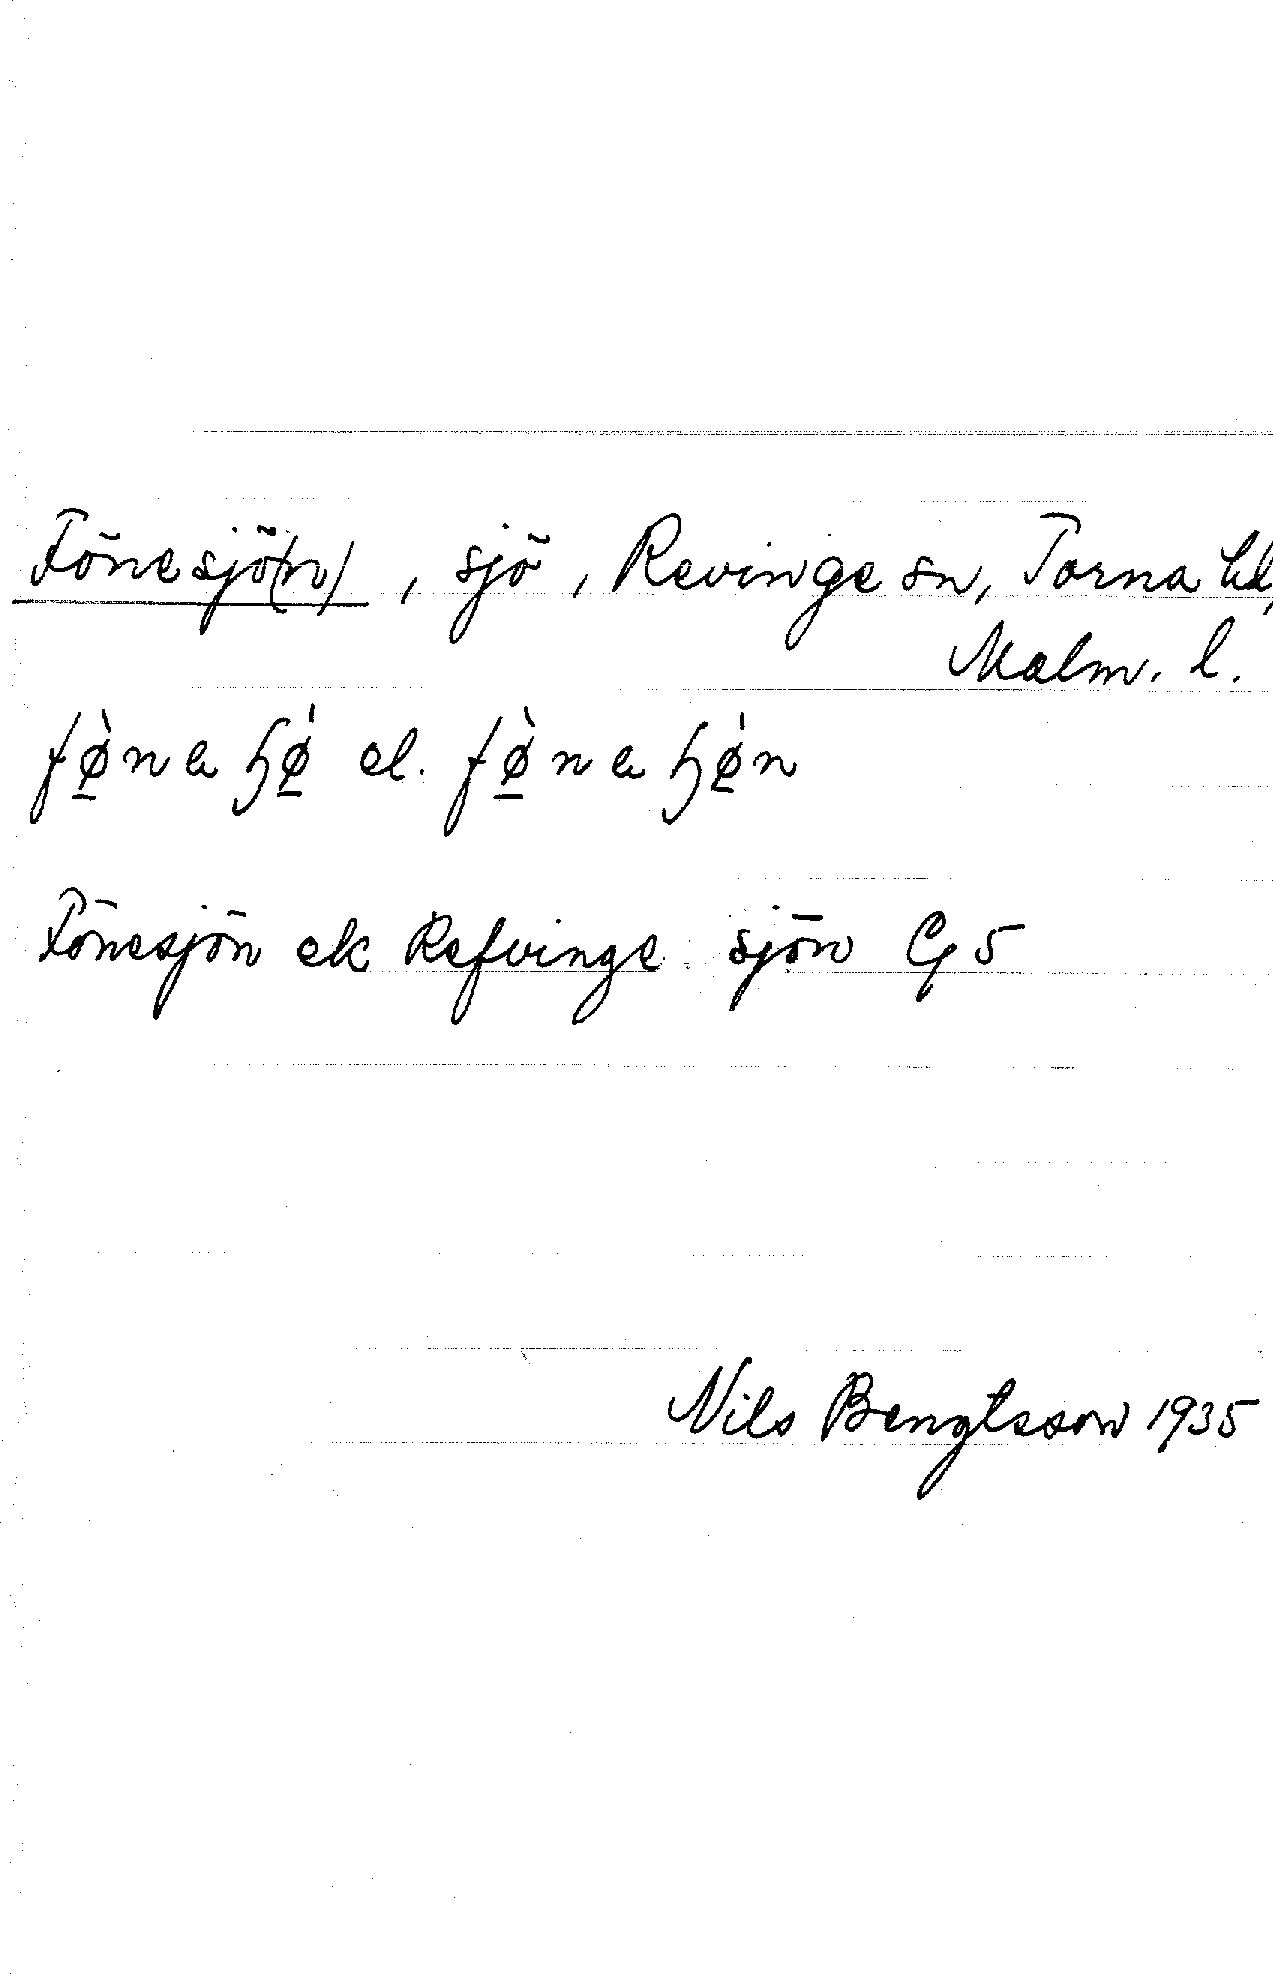 Fönesjö(n), sjö, Revinge sn, Torna hd,
Malm. l.
fø̀na ɧǿ el. fø̀na ɧǿn
Fönesjön ek Refvinge sjön G5
Nils Bengtsson 1935